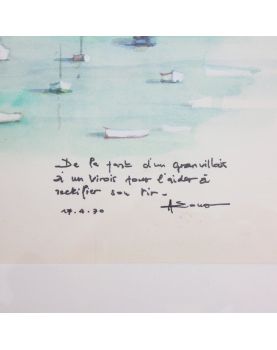 De la part d'un granvillais
à un Virois pour l'aider à
rectifier son tir.
17.4.70